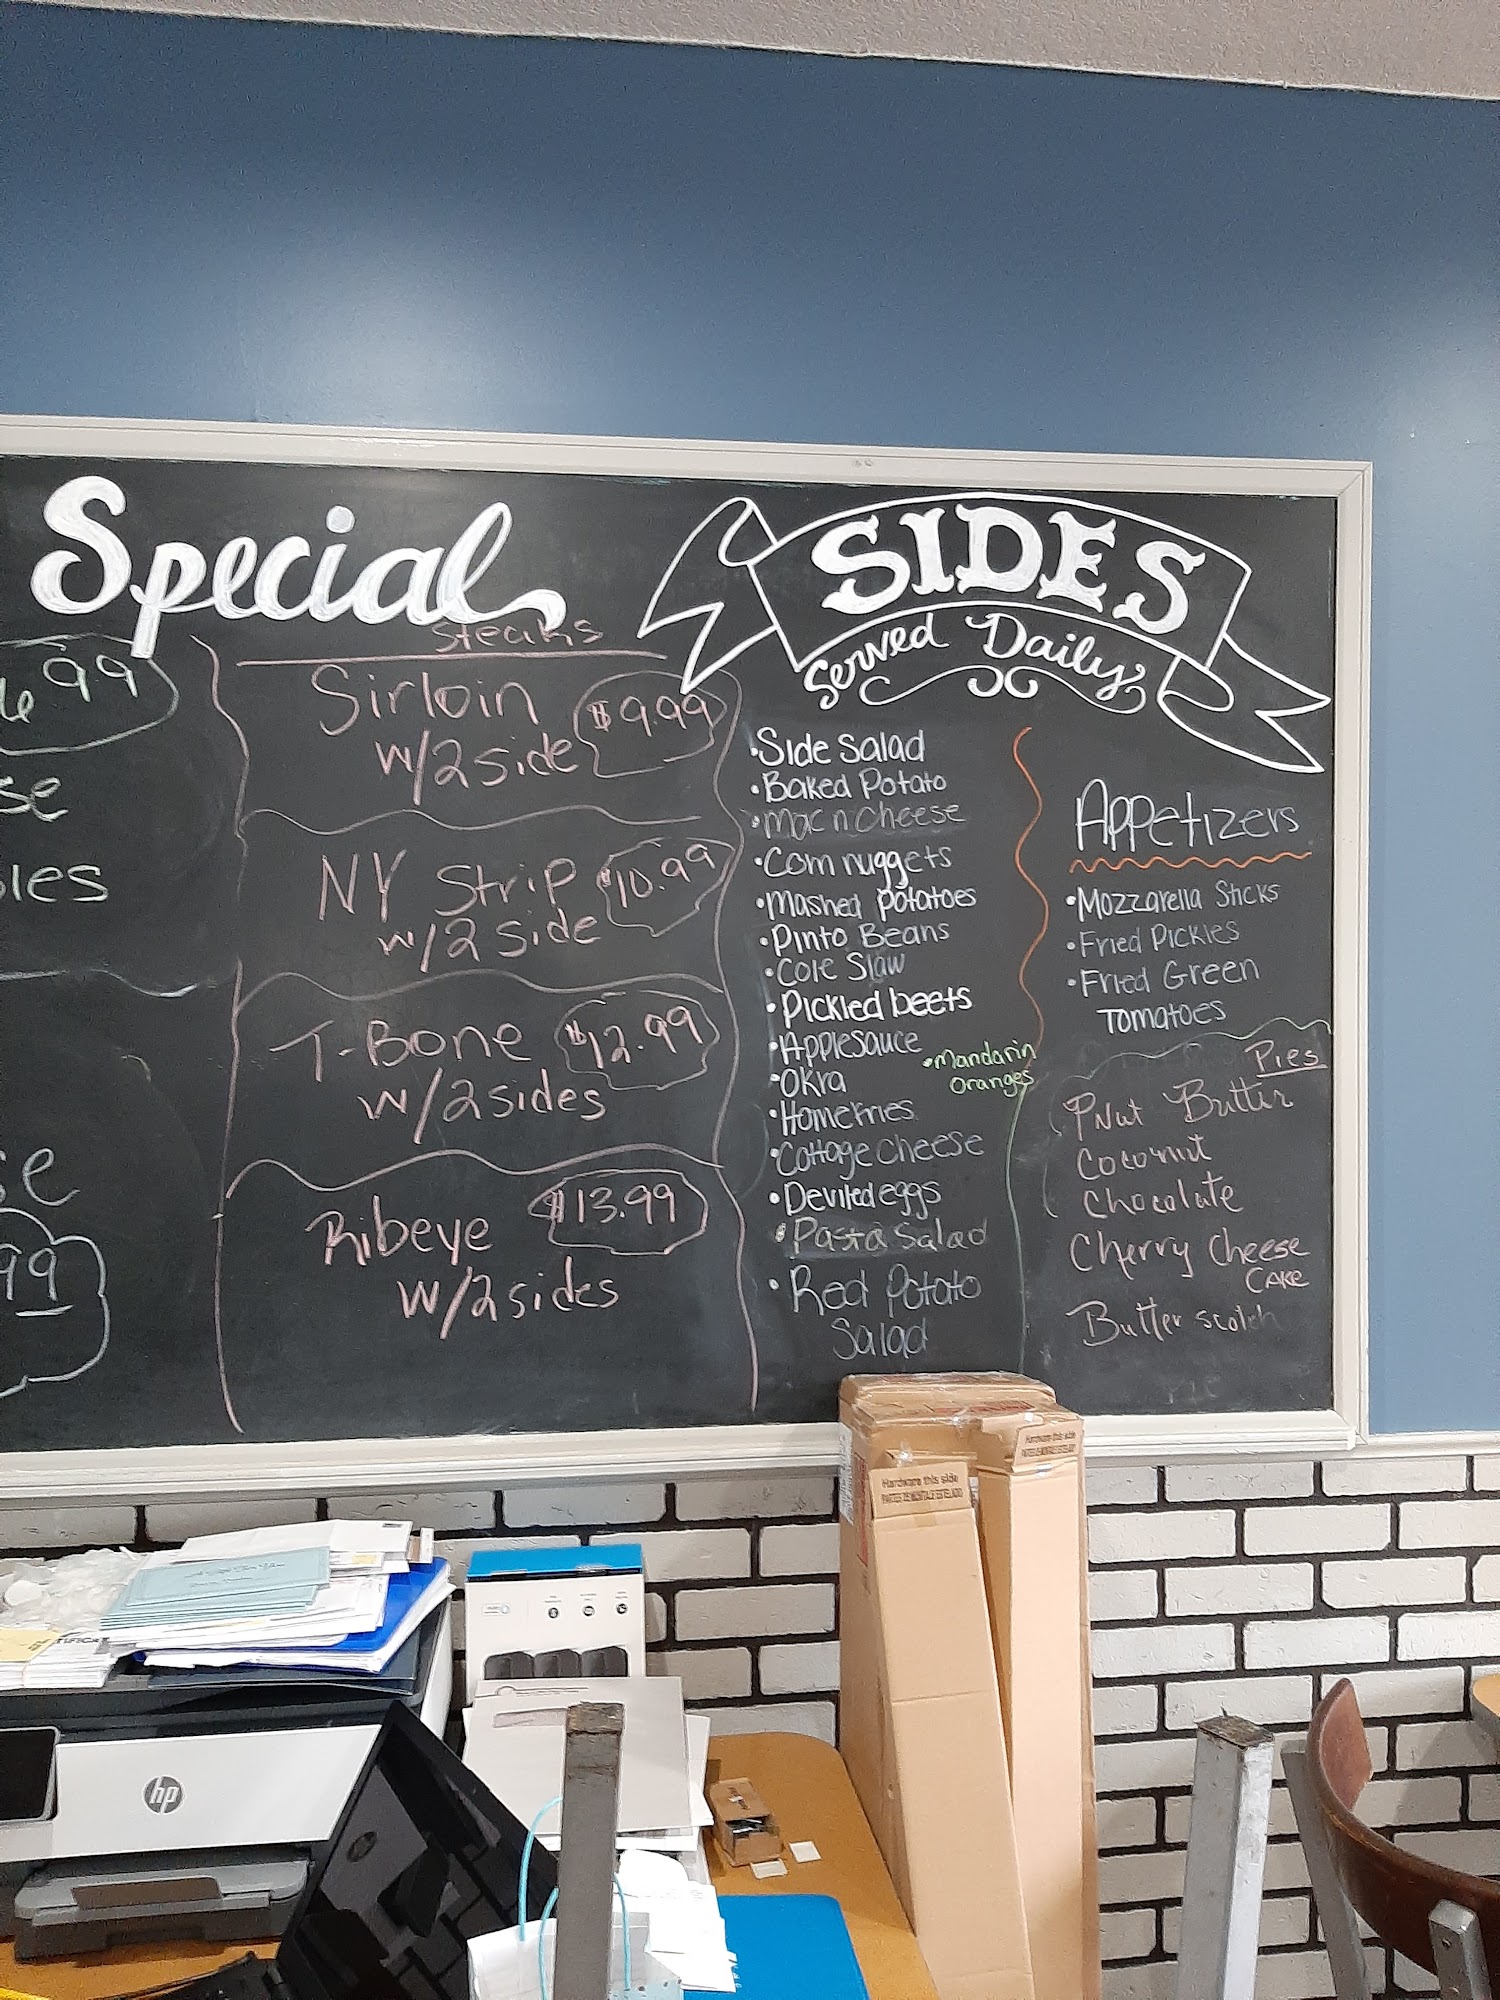 Special
99
se
les
se
99
Steaks
Sirloin $9.99
w/2 side
NY Strip $10.99
w/2 side
T-Bone $12.99
w/2 sides
Ribeye $13.99
w/2 sides
SIDES
Served Daily
•Side Salad
•Baked Potato
•Mac n Cheese
•Corn nuggets
•Mashed Potatoes
•Pinto Beans
•Cole Slaw
•Pickled beets
•Applesauce
•Mandarin
Oranges
•Okra
•Homefries
•Cottage Cheese
•Deviled eggs
•Pasta Salad
•Red Potato
Salad
Appetizers
•Mozzarella Sticks
•Fried Pickles
•Fried Green
Tomatoes
Pies
PNut Butter
Coconut
Chocolate
Cherry Cheese
CAKE
Butter scotch
Hardware this side
Hardware this side
hp